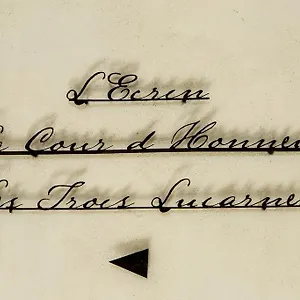 L'Ecrin
a Cour d Honneu
es Trois Lucarne